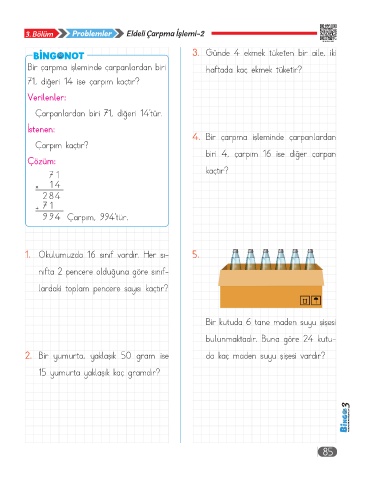 3. Bölüm Problemler Eldeli Çarpma İşlemi-2
BİNGO NOT
Bir çarpma işleminde çarpanlardan biri
71, diğeri 14 ise çarpım kaçtır?
Verilenler:
Çarpanlardan biri 71, diğeri 14'tür.
İstenen:
Çarpım kaçtır?
Çözüm:
71
x 14
284
+ 71
994 Çarpım, 994'tür.
1. Okulumuzda 16 sınıf vardır. Her sı-
nıfta 2 pencere olduğuna göre sınıf-
lardaki toplam pencere sayısı kaçtır?
2. Bir yumurta, yaklaşık 50 gram ise
15 yumurta yaklaşık kaç gramdır?
3. Günde 4 ekmek tüketen bir aile, iki
haftada kaç ekmek tüketir?
4. Bir çarpma işleminde çarpanlardan
biri 4, çarpım 16 ise diğer çarpan
kaçtır?
5.
Bir kutuda 6 tane maden suyu şişesi
bulunmaktadır. Buna göre 24 kutu-
da kaç maden suyu şişesi vardır?
BİNGO 3
85